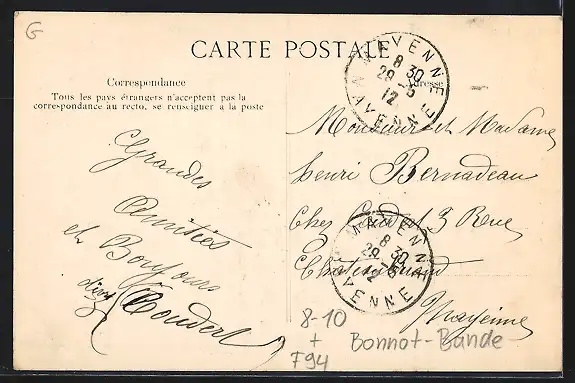 G
CARTE POSTALE
Correspondance
Tous les pays étrangers n'acceptent pas la
correspondance au recto, se renseigner à la poste
Adresse
MAYENNE
8 30
29-5
12
MAYENNE
Grandes
Amitiés
et Bonjours
Coudert
Monsieur et Madame
henri Bernadeau
Chez Coudert 3 Rue
Chateaubriand
Mayenne
MAYENNE
8 30
29-5
12
MAYENNE
8-10
+
F94
Bonnot-Bande